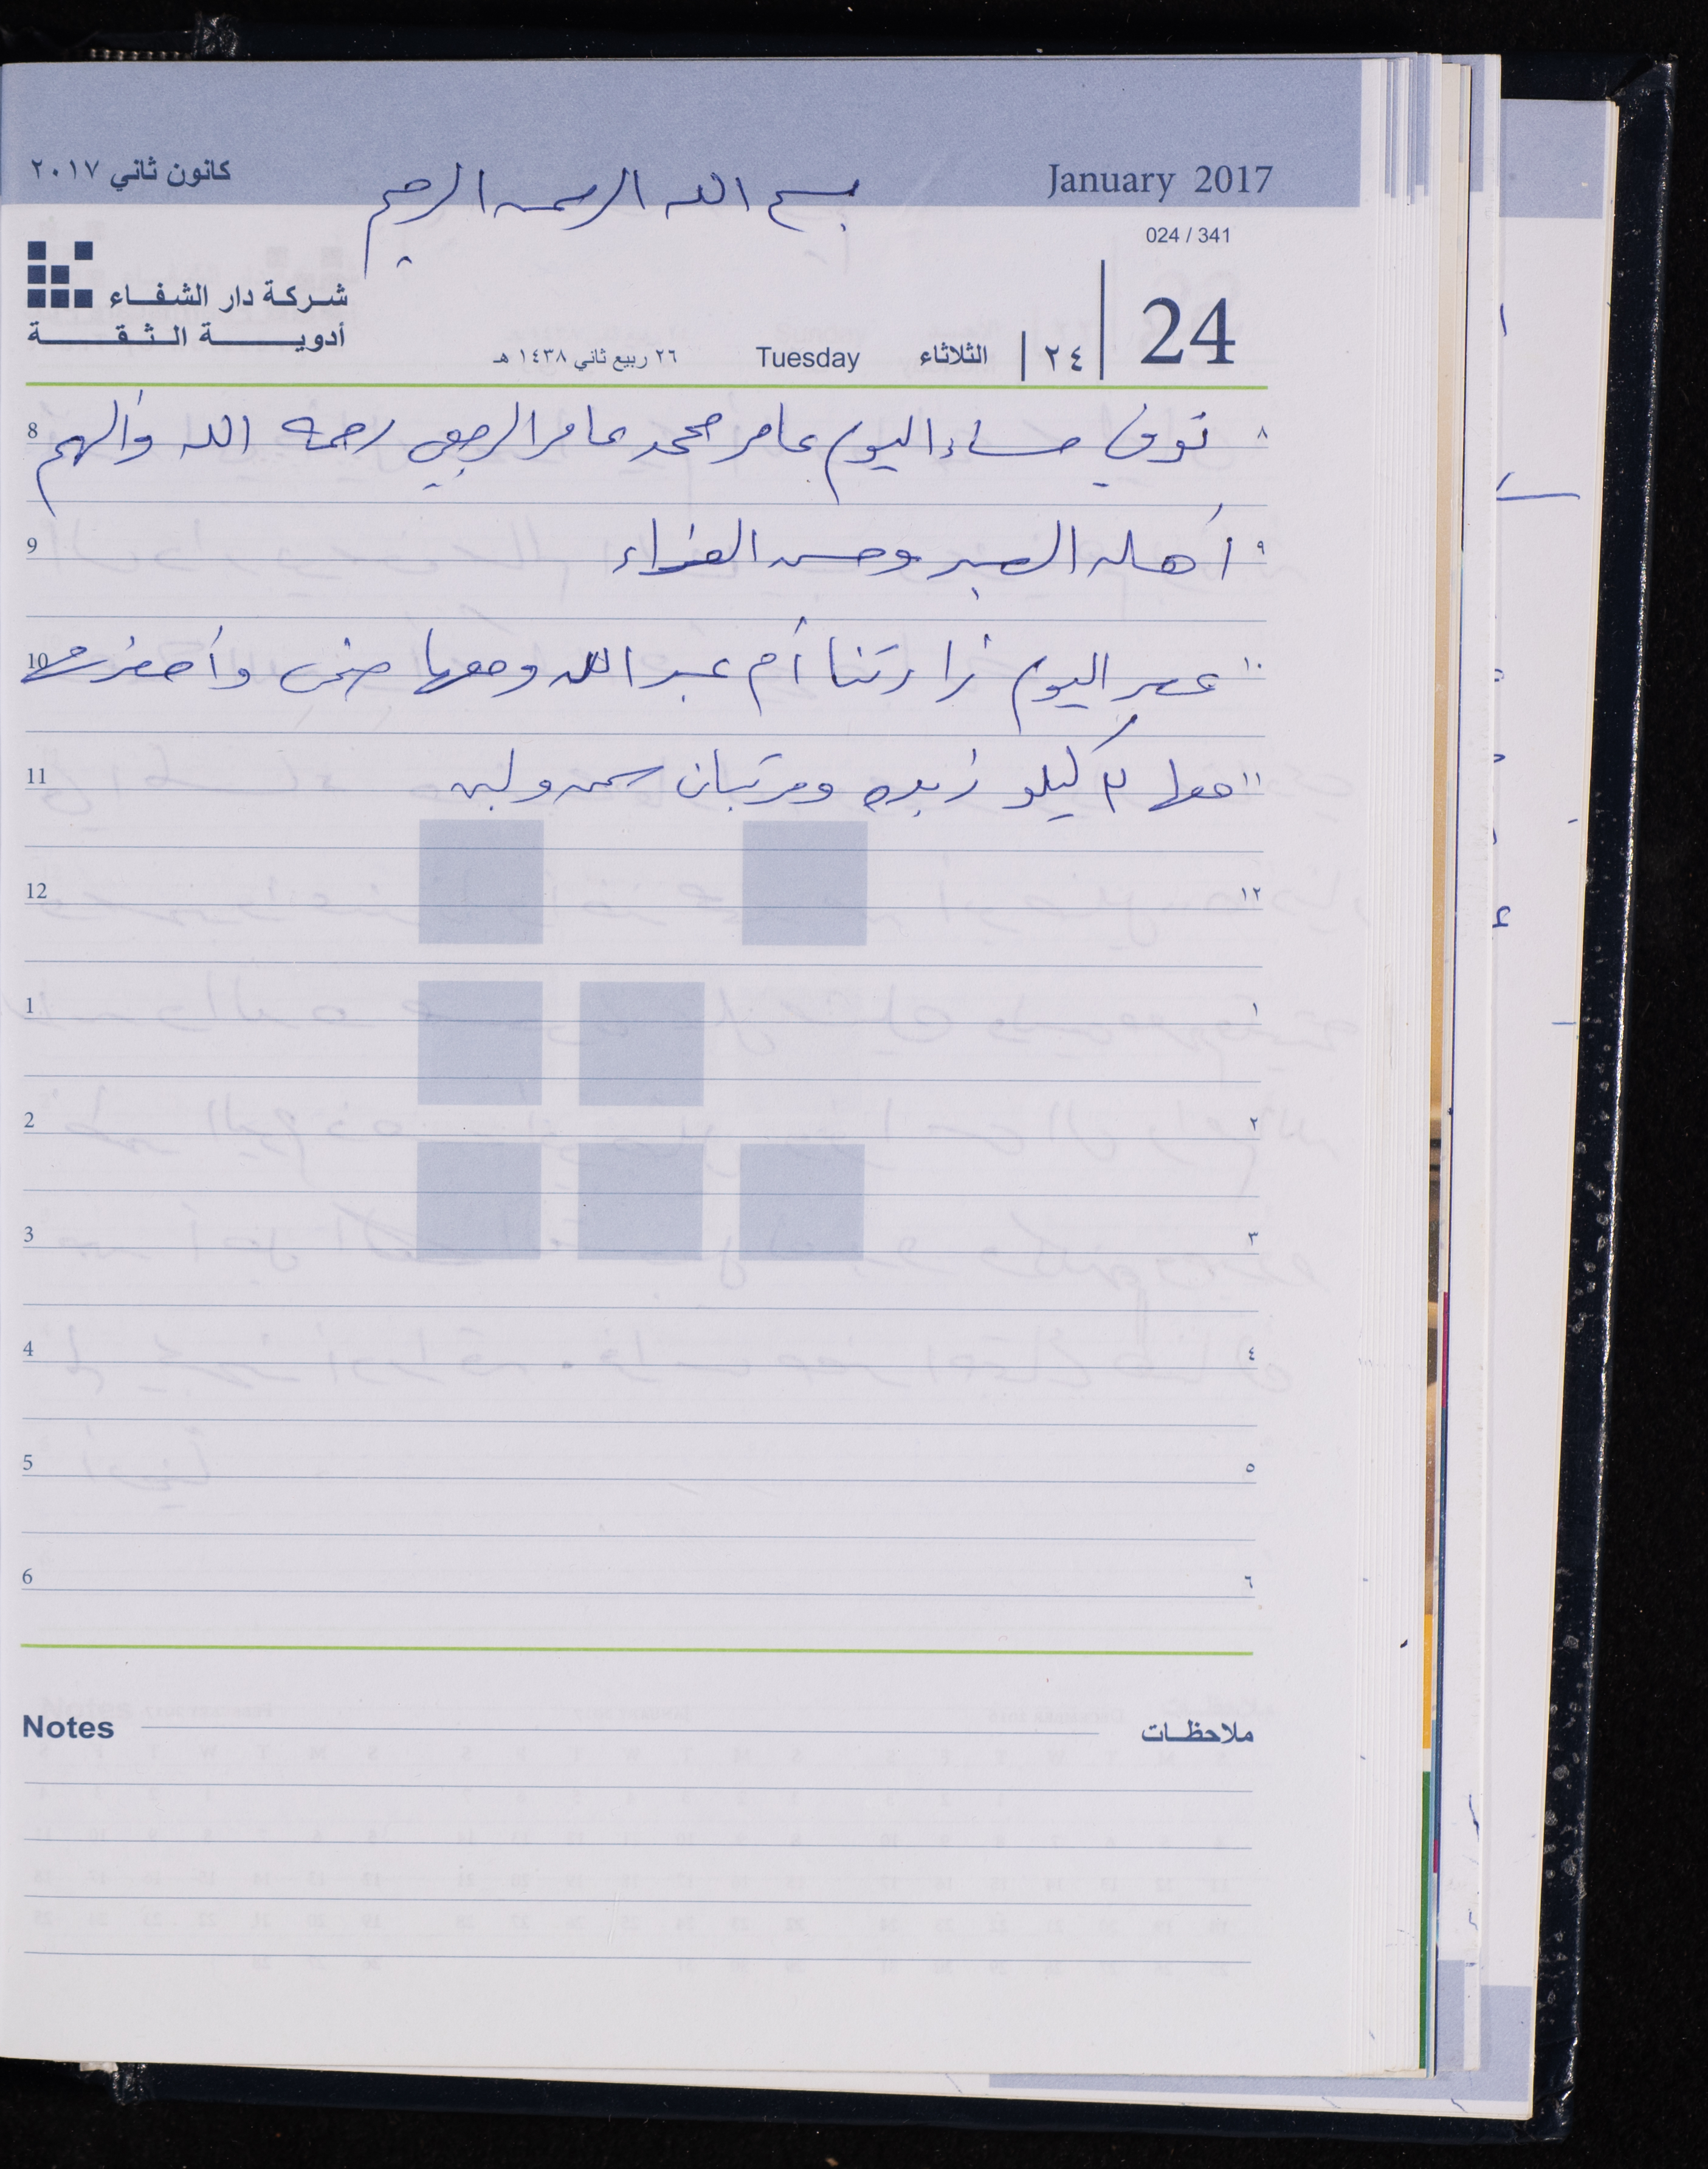 كانون ثاني ٢٠١٧
January 2017
بسم الله الرحمن الرحيم
024 / 341
شركة دار الشفاء
أدوية الثقة
24
٢٤
الثلاثاء
Tuesday
٢٦ ربيع ثاني ١٤٣٨ هـ
8 توفي مساء اليوم عامر محمد عامر الرجعي رحمه الله وألهم ٨
9 أهله الصبر وحسن العزاء ٩
10 عصر اليوم زارتنا أم عبد الله ومعها ضحى وأحضرت ١٠
11 معها ٣ كيلو زبده ومرتبان سمن ولبن ١١
12 ١٢
1 ١
2 ٢
3 ٣
4 ٤
5 ٥
6 ٦
Notes ملاحظات